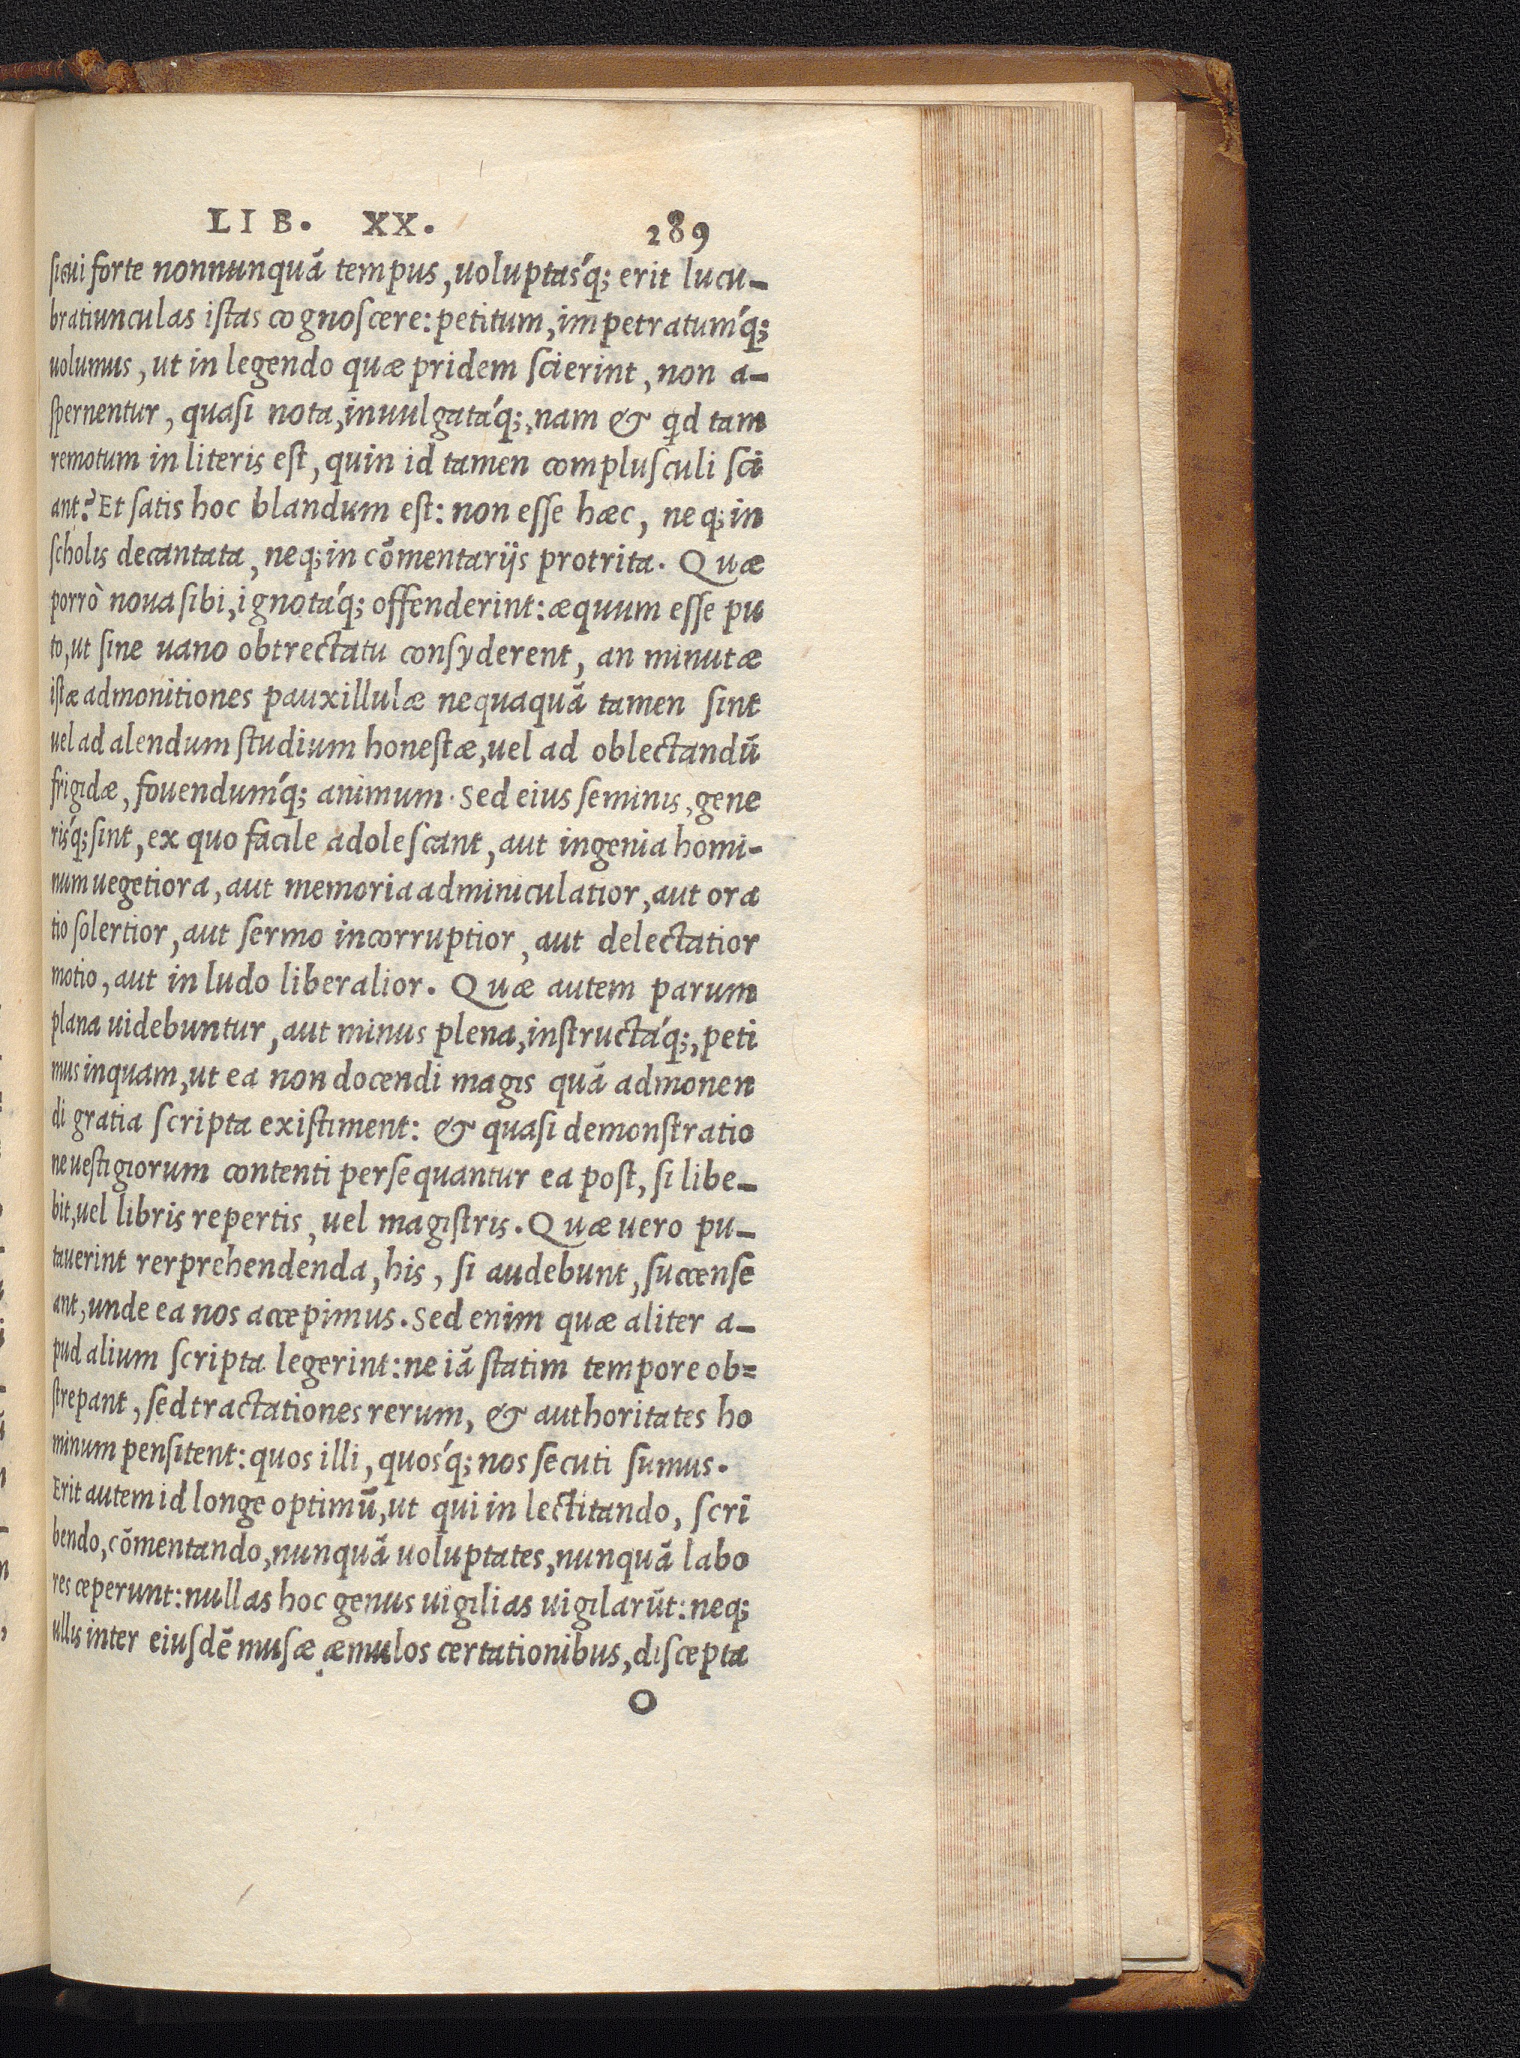 LIB. XX. 289
sicui forte nonnunquã tempus, uoluptas'q; erit lucu-
bratiunculas istas cognoscere: petitum, impetratum'q;
uolumus, ut in legendo quæ pridem scierint, non a-
spernentur, quasi nota, inuulgata'q;, nam & qd tam
remotum in literis est, quin id tamen complusculi sci
ant? Et satis hoc blandum est: non esse hæc, neq; in
scholis decantata, neq; in cõmentarijs protrita. Quæ
porrò noua sibi, ignota'q; offenderint: æquum esse pu
to, ut sine uano obtrectatu consyderent, an minutæ
istæ admonitiones pauxillulæ nequaquã tamen sint
uel ad alendum studium honestæ, uel ad oblectandũ
frigidæ, fouendum'q; animum. Sed eius seminis, gene
ris'q; sint, ex quo facile adolescant, aut ingenia homi-
num uegetiora, aut memoria adminiculatior, aut ora
tio solertior, aut sermo incorruptior, aut delectatior
motio, aut in ludo liberalior. Quæ autem parum
plana uidebuntur, aut minus plena, instructa'q;, peti
mus inquam, ut ea non docendi magis quã admonen
di gratia scripta existiment: & quasi demonstratio
ne uestigiorum contenti persequantur ea post, si libe-
bit, uel libris repertis, uel magistris. Quæ uero pu-
tauerint rerprehendenda, his, si audebunt, succense
ant, unde ea nos accepimus. Sed enim quæ aliter a-
pud alium scripta legerint: ne iã statim tempore ob=
strepant, sed tractationes rerum, & authoritates ho
minum pensitent: quos illi, quos'q; nos secuti sumus.
Erit autem id longe optimũ, ut qui in lectitando, scri
bendo, cõmentando, nunquã uoluptates, nunquã labo
res ceperunt: nullas hoc genus uigilias uigilarũt: neq;
ullis inter eiusdẽ musæ æmulos certationibus, discepta
O